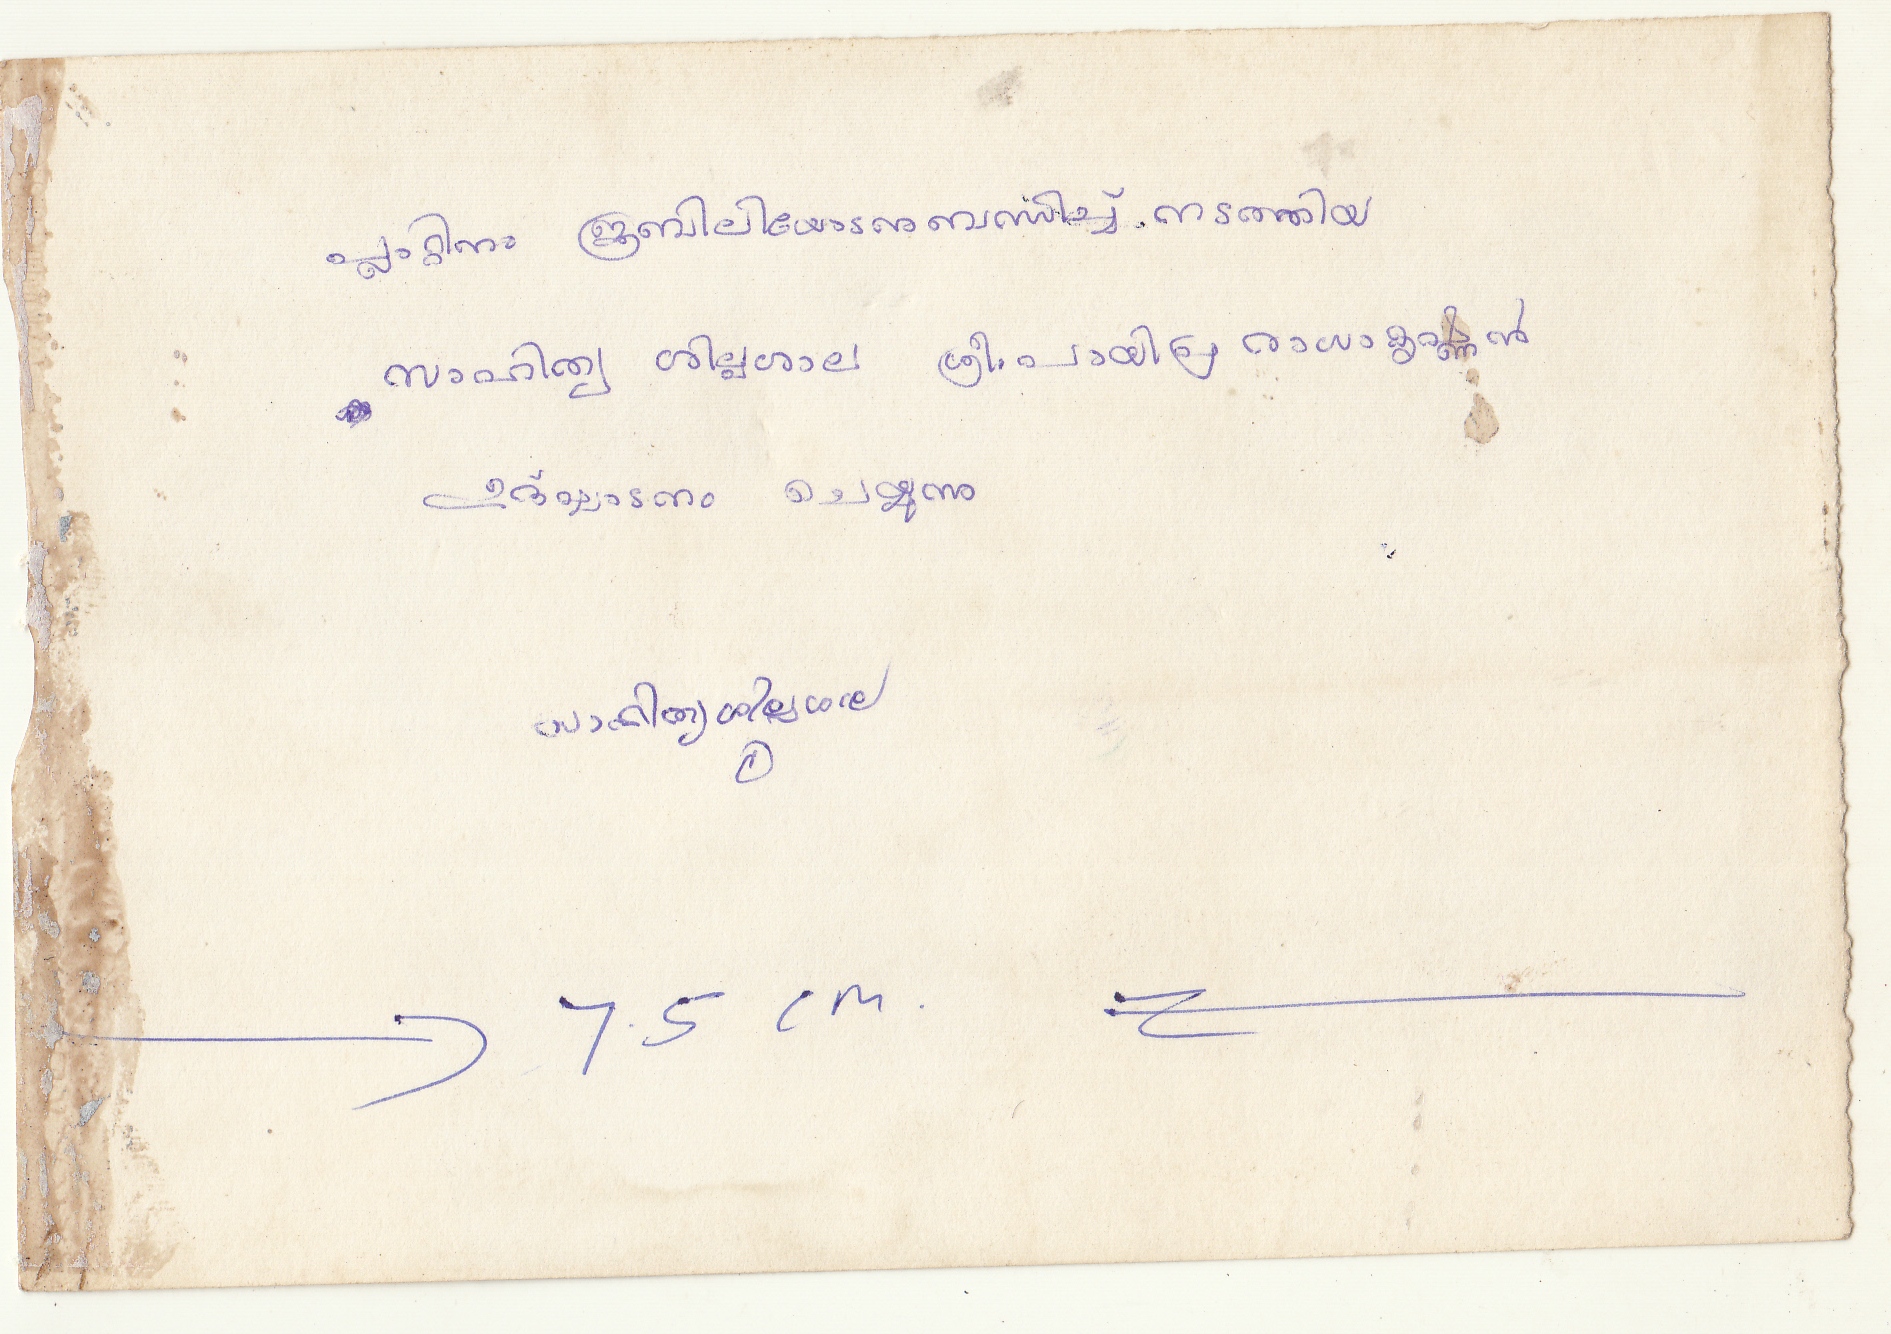 പ്ലാറ്റിനം ജൂബിലിയോടനുബന്ധിച്ച് നടത്തിയ
സാഹിത്യ ശില്പശാല ശ്രീ. പായിപ്ര രാധാകൃഷ്ണൻ
ഉൽഘാടനം ചെയ്യുന്നു
സാഹിത്യശില്പശാല
1
7.5 cm.